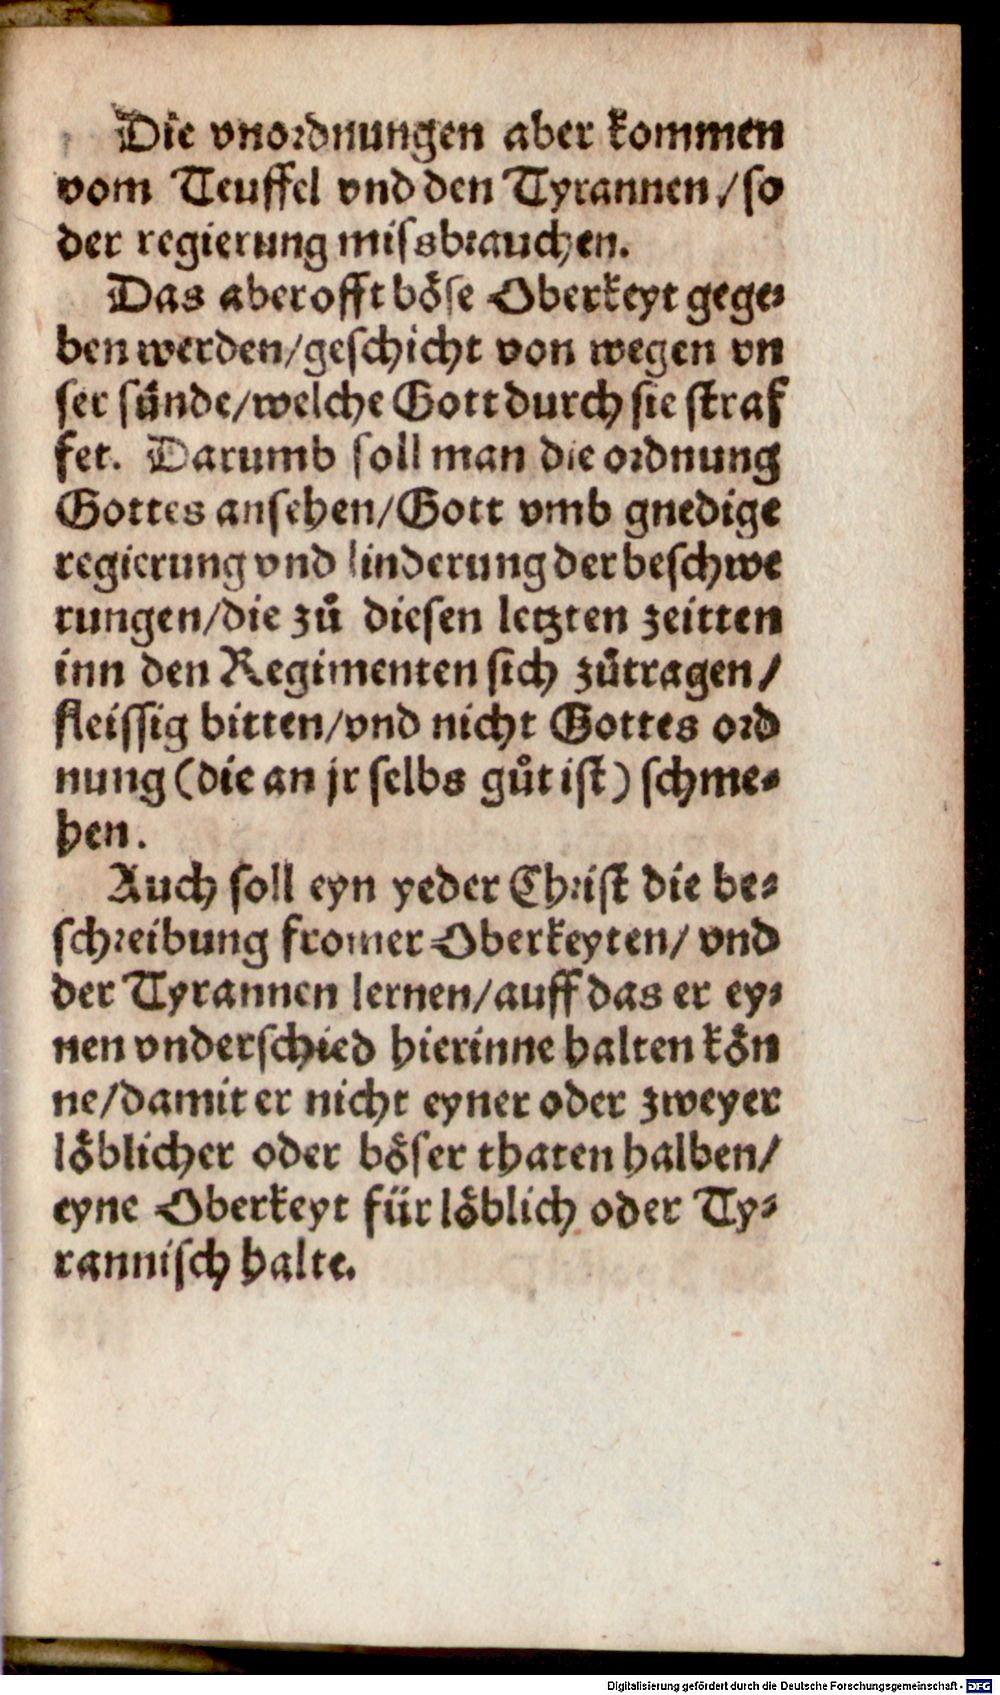 Die vnordnungen aber kommen
vom Teuffel vnd den Tyrannen / so
der regierung missbrauchen.
Das aber offt böse Oberkeyt gege⸗
ben werden / geschicht von wegen vn
ser sünde / welche Gott durch sie straf
fet. Darumb soll man die ordnung
Gottes ansehen / Gott vmb gnedige
regierung vnd linderung der beschwe
rungen / die zů diesen letzten zeitten
inn den Regimenten sich zůtragen /
fleissig bitten / vnd nicht Gottes ord
nung (die an jr selbs gůt ist) schme⸗
hen.
Auch soll eyn yeder Christ die be⸗
schreibung fromer Oberkeyten / vnd
der Tyrannen lernen / auff das er ey⸗
nen vnderschied hierinne halten kön
ne / damit er nicht eyner oder zweyer
löblicher oder böser thaten halben /
eyne Oberkeyt für löblich oder Ty⸗
rannisch halte.
Digitalisierung gefördert durch die Deutsche Forschungsgemeinschaft - DFG